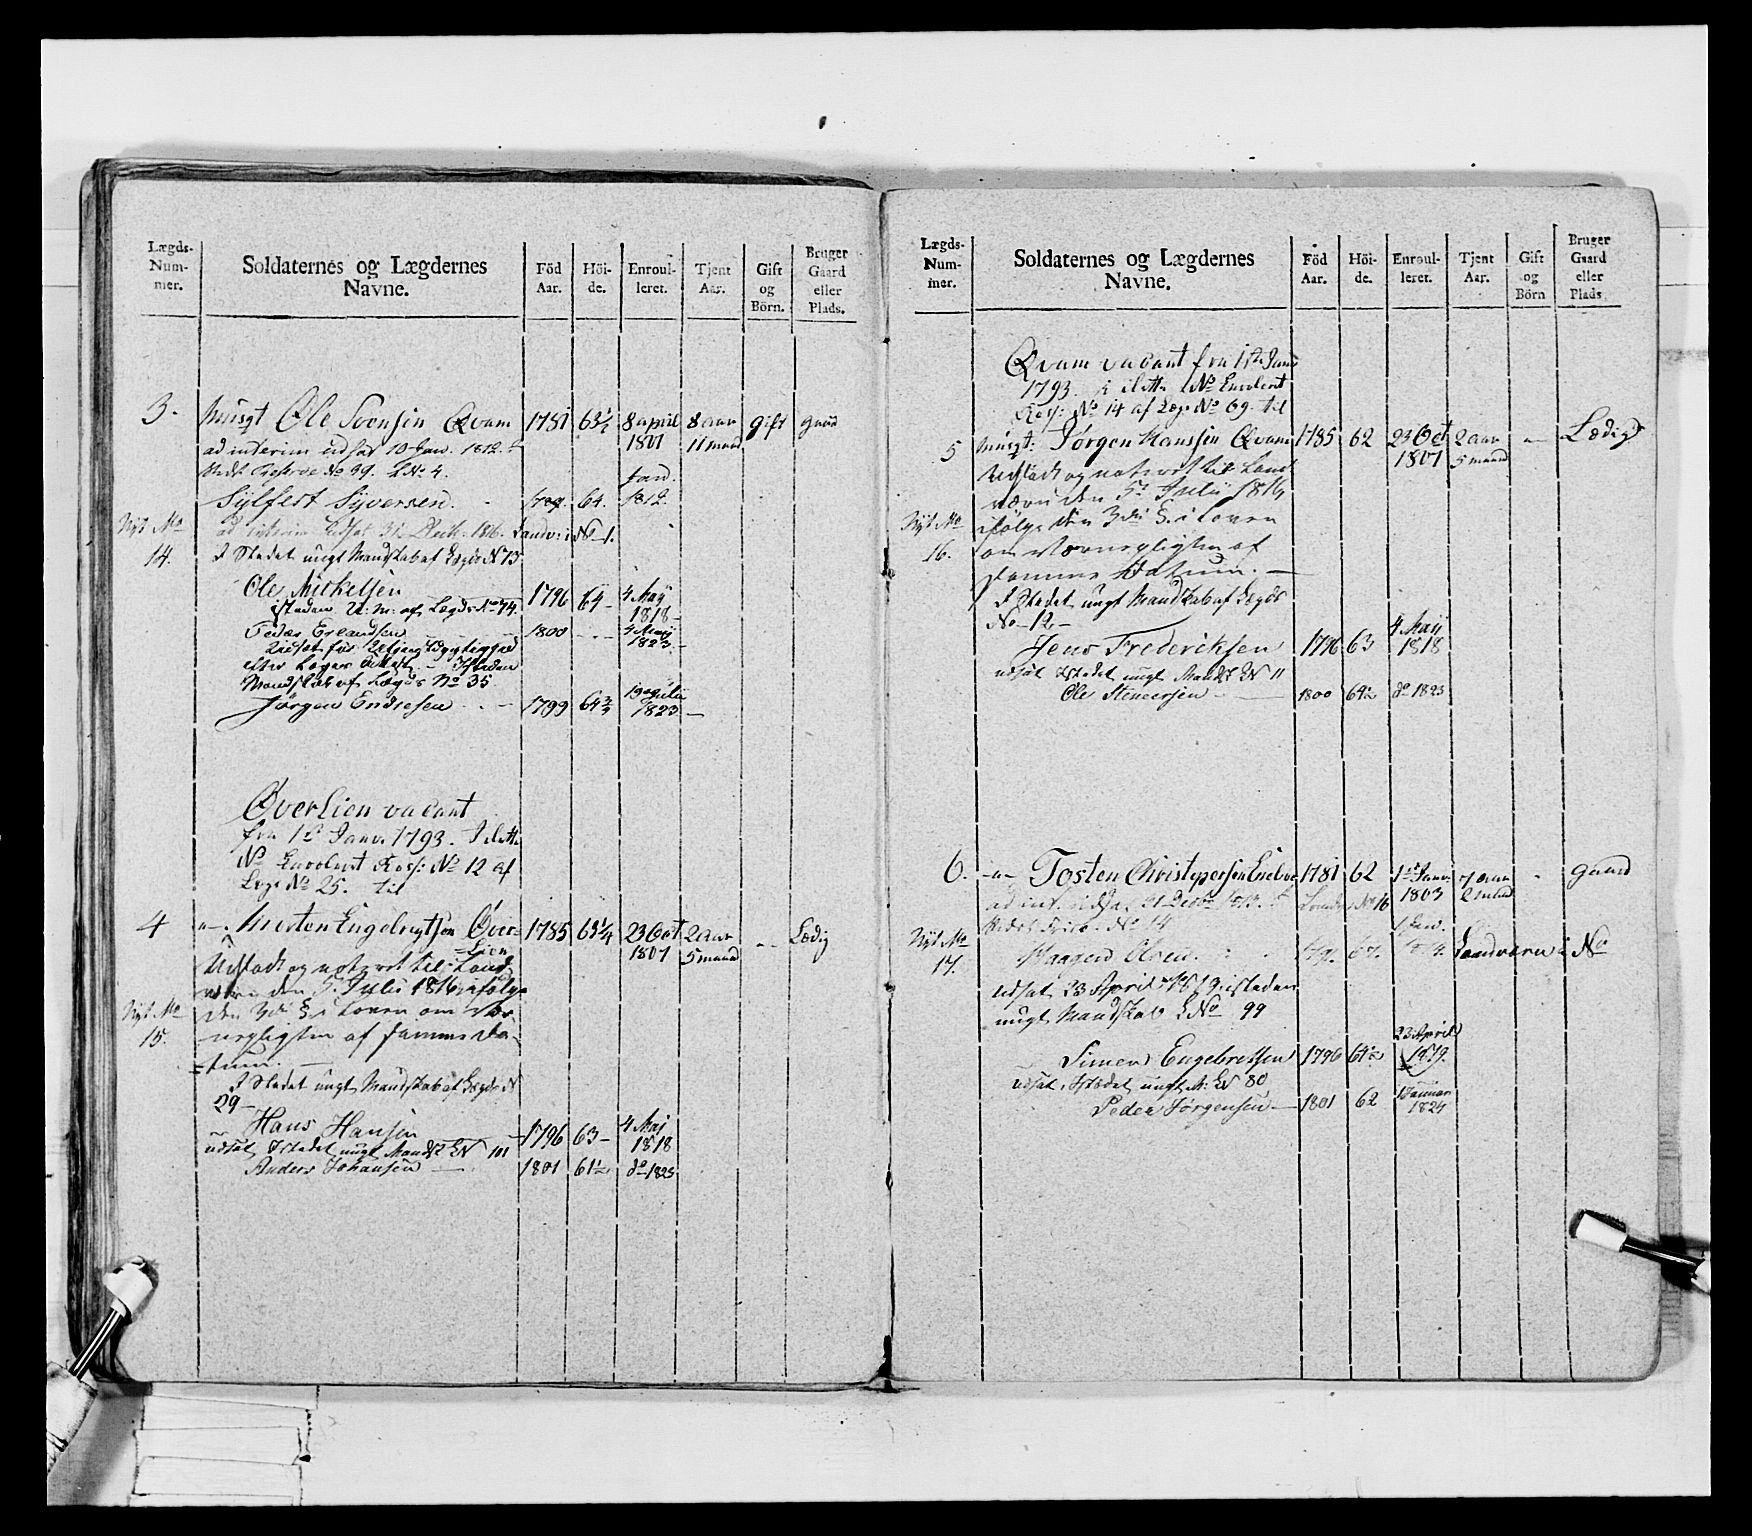 Lægds-
Num-
mer.
Soldaternes og Lægdernes
Navne.
Föd
Aar.
Höi-
de.
Enroul-
leret.
Tjent
Aar.
Gift
og
Börn.
Bruger
Gaard
eller
Plads.
3. Musqt Ole Svensen Qvam 1781 63½ 8 april 1801 8 aar 11 maand gift gaard
ad interim udsat 10 Jan. 1812.
No 99. L No 4.
Sylfest Syversen. 64. Jan. 1812.
ad interim udsat 31 Dec. 1816. Landv: i No 1.
Nyt No
14.
I Stedet ungt Mandskab af Lægds No 73
Ole Mickelsen 1796 64 - 4 Maij 1818 -
istæden U: M: af Lægds No 74.
Peder Erlandsen 1800 - - - 4 Maij 1823. -
efter Læges Attest. - Istæden
Mandskab af Lægds No 35
Jørgen Endresen . . - 1799 64¾ 19 aprilii 1823 -
Øverlien vacant
fra 1st Janv. 1793. I dette
No Enrolert Res: No 12 af
Leg: No 25. til
4 -"-. Morten Engebrigtsen Øver- 1785 63¼ 23 Oct 1807 2 aar 5 maand - - Lædig
Lien
Udstødt og noteret til Land
værn den 5 Julii 1816 ifølge
den 3die § i Loven om Vær-
nepligten af samme Da-
tum. -
Nyt No
15.
I Stedet ungt Mandskab af Lægds N
29 -
Hans Hansen 1796 63 - 4 Maj 1818
udsat, Istedet ungt Mandsk LN 111
Anders Johansen - 1801 61½ do 1825
Lægds-
Num-
mer.
Soldaternes og Lægdernes
Navne.
Föd
Aar.
Höi-
de.
Enroul-
leret.
Tjent
Aar.
Gift
og
Börn
Bruger
Gaard
eller
Plads.
Qvam vacant fra 1ste Janv
1793. i dette No Enrolert
Res: No 14 af Leg: No 69. til
5 Musqt: Jørgen Hansen Qvam 1785 62 23 Oct 1807 2 aar 5 maand - Lædig
Udstødt og noteret til Land
værn den 5t Julii 1816
ifølge den 3die § i Loven
om Værnepligten af
samme Datum. -
Nyt No
16.
I Stedet ungt Mandskab af Lægds
No 12 -
Jens Fredericksen 1796 63 4 Maij 1818
udsat Istedet ungt Mandsk LN 11
Ole Steenersen - 1800 64½ do 1823
6. -"- Tosten Christophersen 1781 62 1st Janv 1803 7 aar 2 maand - gaard
ad int. udsat 31 Decbr 1813. Landv No 16
No 14
Nyt No
17.
Haagen Olsen. 1 Jan. Landværn i No
udsat 23 April 1819 isteden
ungt Mandskab L No 99
Simen Engebretsen 1796 64½ 23 April 1819.
udsat, Istædet ungt M: LN 80
Peder Jørgensen - 1801 62 1 Januar 1824